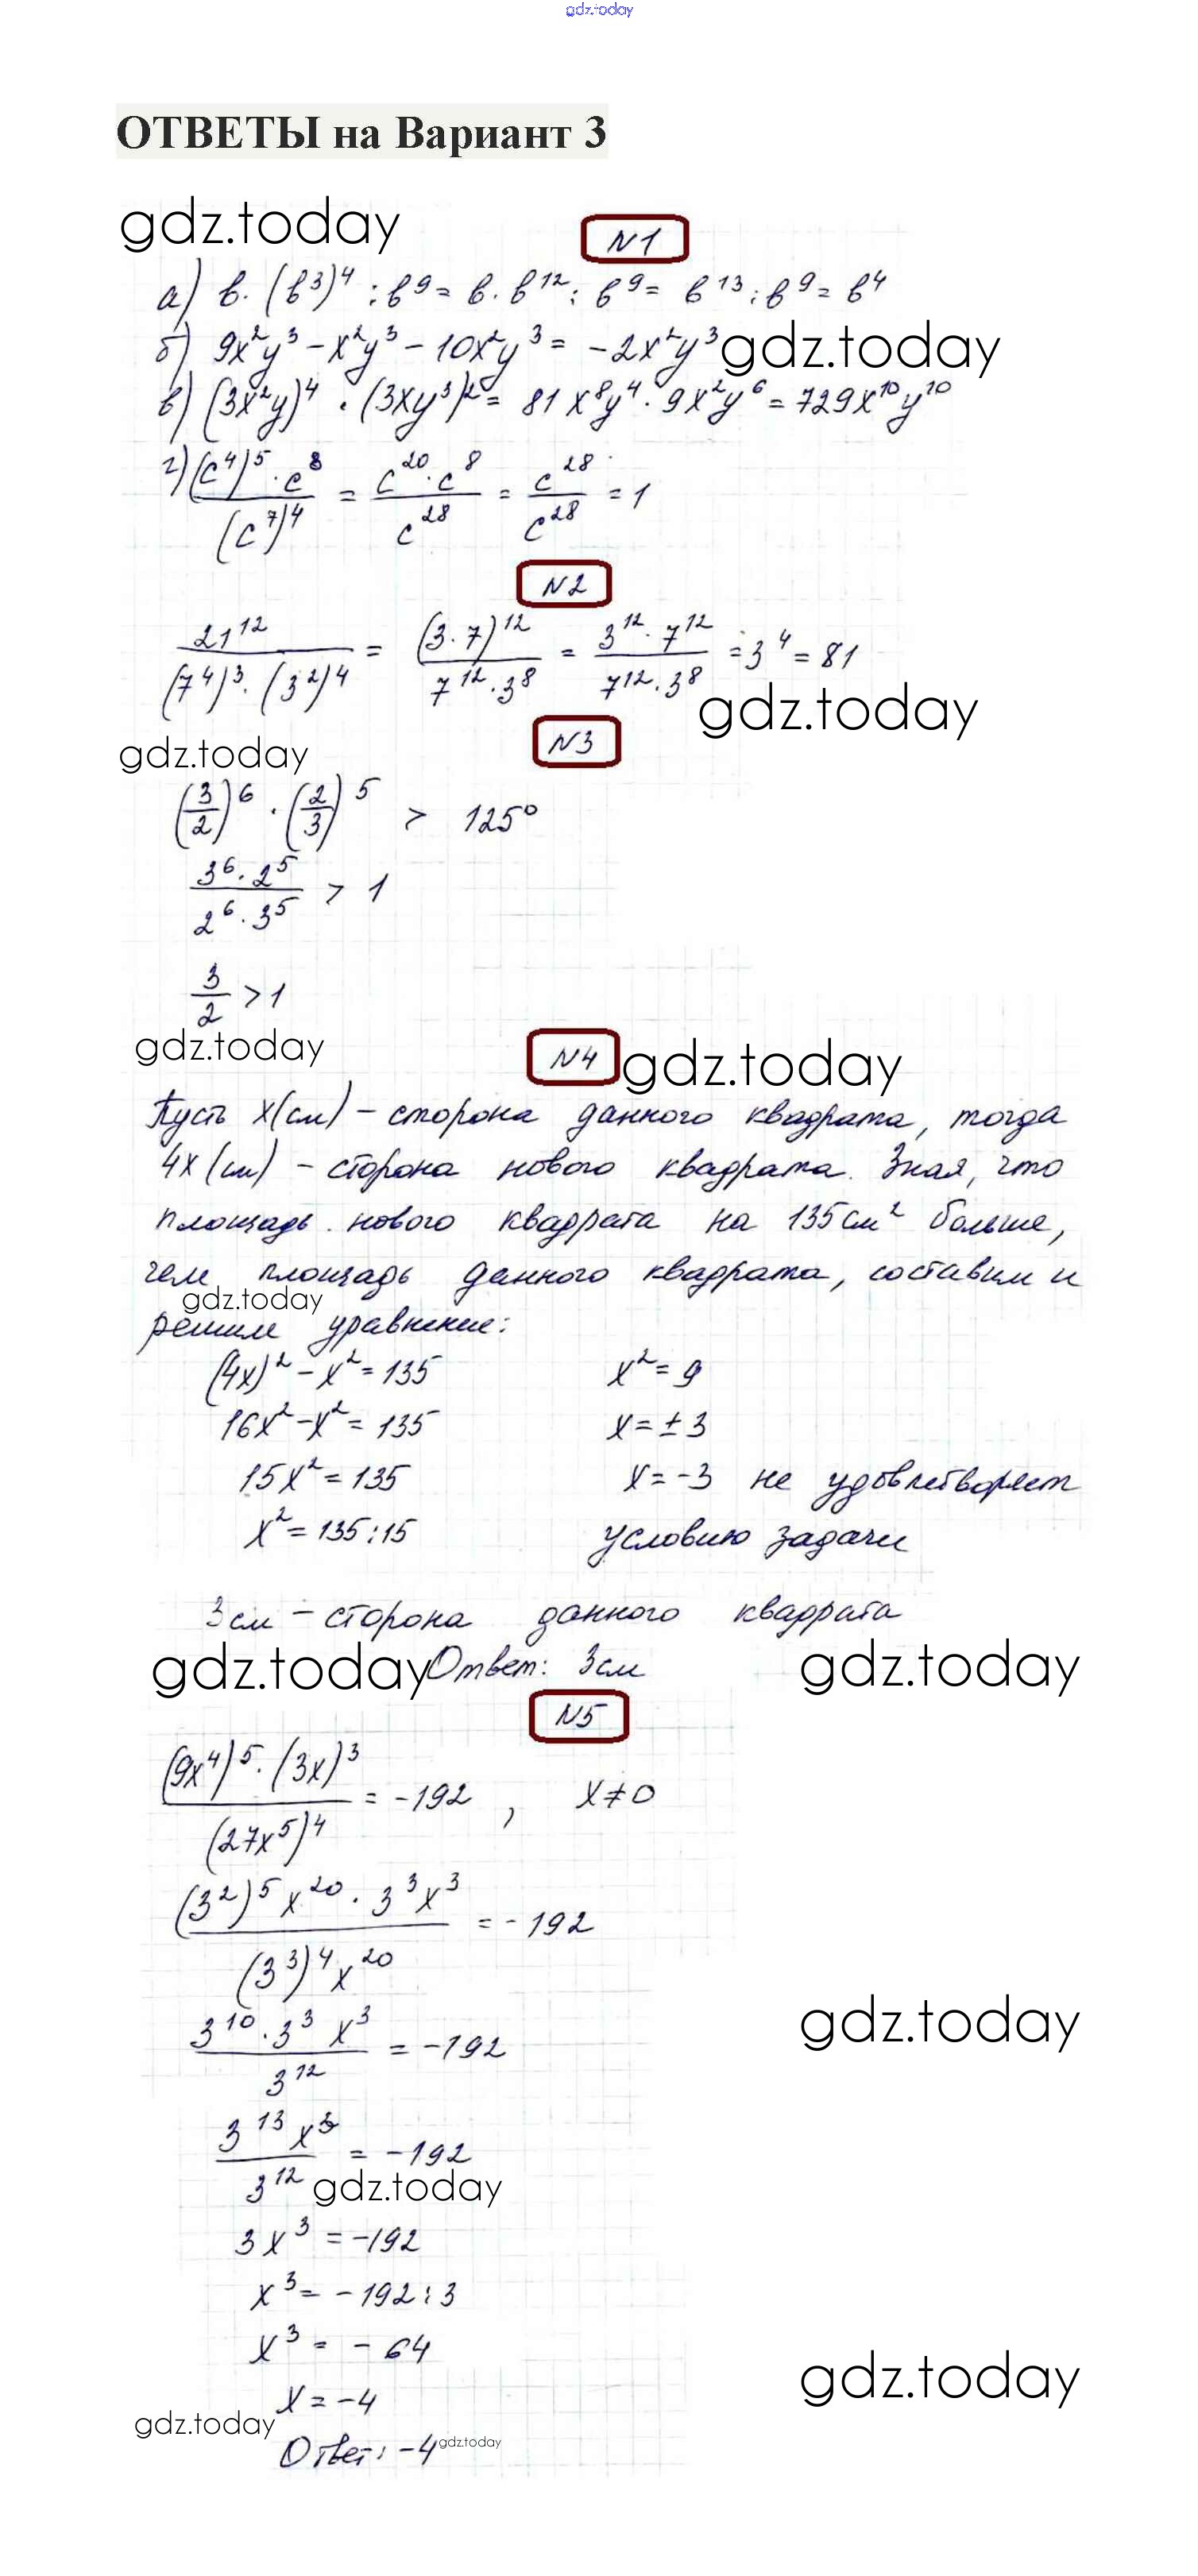 gdz.today
ОТВЕТЫ на Вариант 3
gdz.today
№1
а) b·(b³)⁴ : b⁹ = b·b¹² : b⁹ = b¹³ : b⁹ = b⁴
б) 9x²y³ − x²y³ − 10x²y³ = −2x²y³
gdz.today
в) (3x²y)⁴ · (3xy³)² = 81x⁸y⁴ · 9x²y⁶ = 729x¹⁰y¹⁰
г) (c⁴)⁵·c⁸ / (c⁷)⁴ = c²⁰·c⁸ / c²⁸ = c²⁸ / c²⁸ = 1
№2
21¹² / (7⁴)³·(3²)⁴ = (3·7)¹² / 7¹²·3⁸ = 3¹²·7¹² / 7¹²·3⁸ = 3⁴ = 81
gdz.today
gdz.today
№3
(3/2)⁶ · (2/3)⁵ > 125⁰
3⁶·2⁵ / 2⁶·3⁵ > 1
3/2 > 1
gdz.today
№4
gdz.today
Пусть x(см) – сторона данного квадрата, тогда
4x(см) – сторона нового квадрата. Зная, что
площадь нового квадрата на 135см² больше,
чем площадь данного квадрата, составим и
gdz.today
решим уравнение:
(4x)² − x² = 135
16x² − x² = 135
15x² = 135
x² = 135:15
x² = 9
x = ±3
x = −3 не удовлетворяет
условию задачи
3см – сторона данного квадрата
gdz.today
Ответ: 3см
gdz.today
№5
(9x⁴)⁵·(3x)³ / (27x⁵)⁴ = −192 , x≠0
(3²)⁵x²⁰·3³x³ / (3³)⁴x²⁰ = −192
3¹⁰·3³x³ / 3¹² = −192
gdz.today
3¹³x³ / 3¹² = −192
gdz.today
3x³ = −192
x³ = −192:3
x³ = −64
gdz.today
x = −4
gdz.today
Ответ: −4
gdz.today